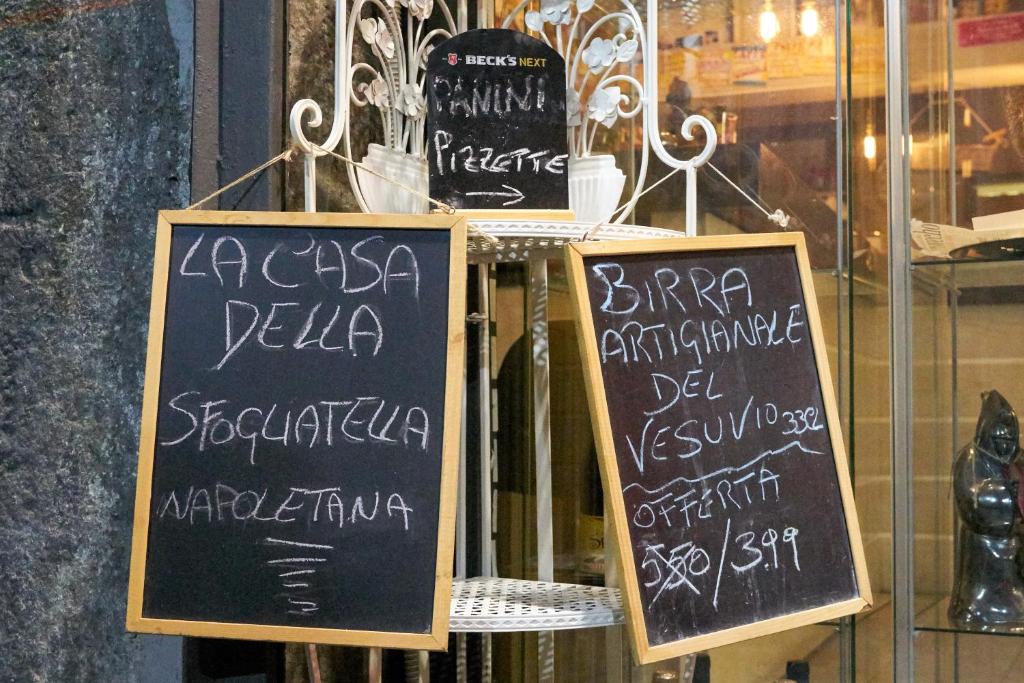 BECK'S NEXT
PANINI
PIZZETTE
LA CASA
DELLA
SFOGLIATELLA
NAPOLETANA
BIRRA
ARTIGIANALE
DEL
VESUVIO 33CL
OFFERTA
5,50/3.99